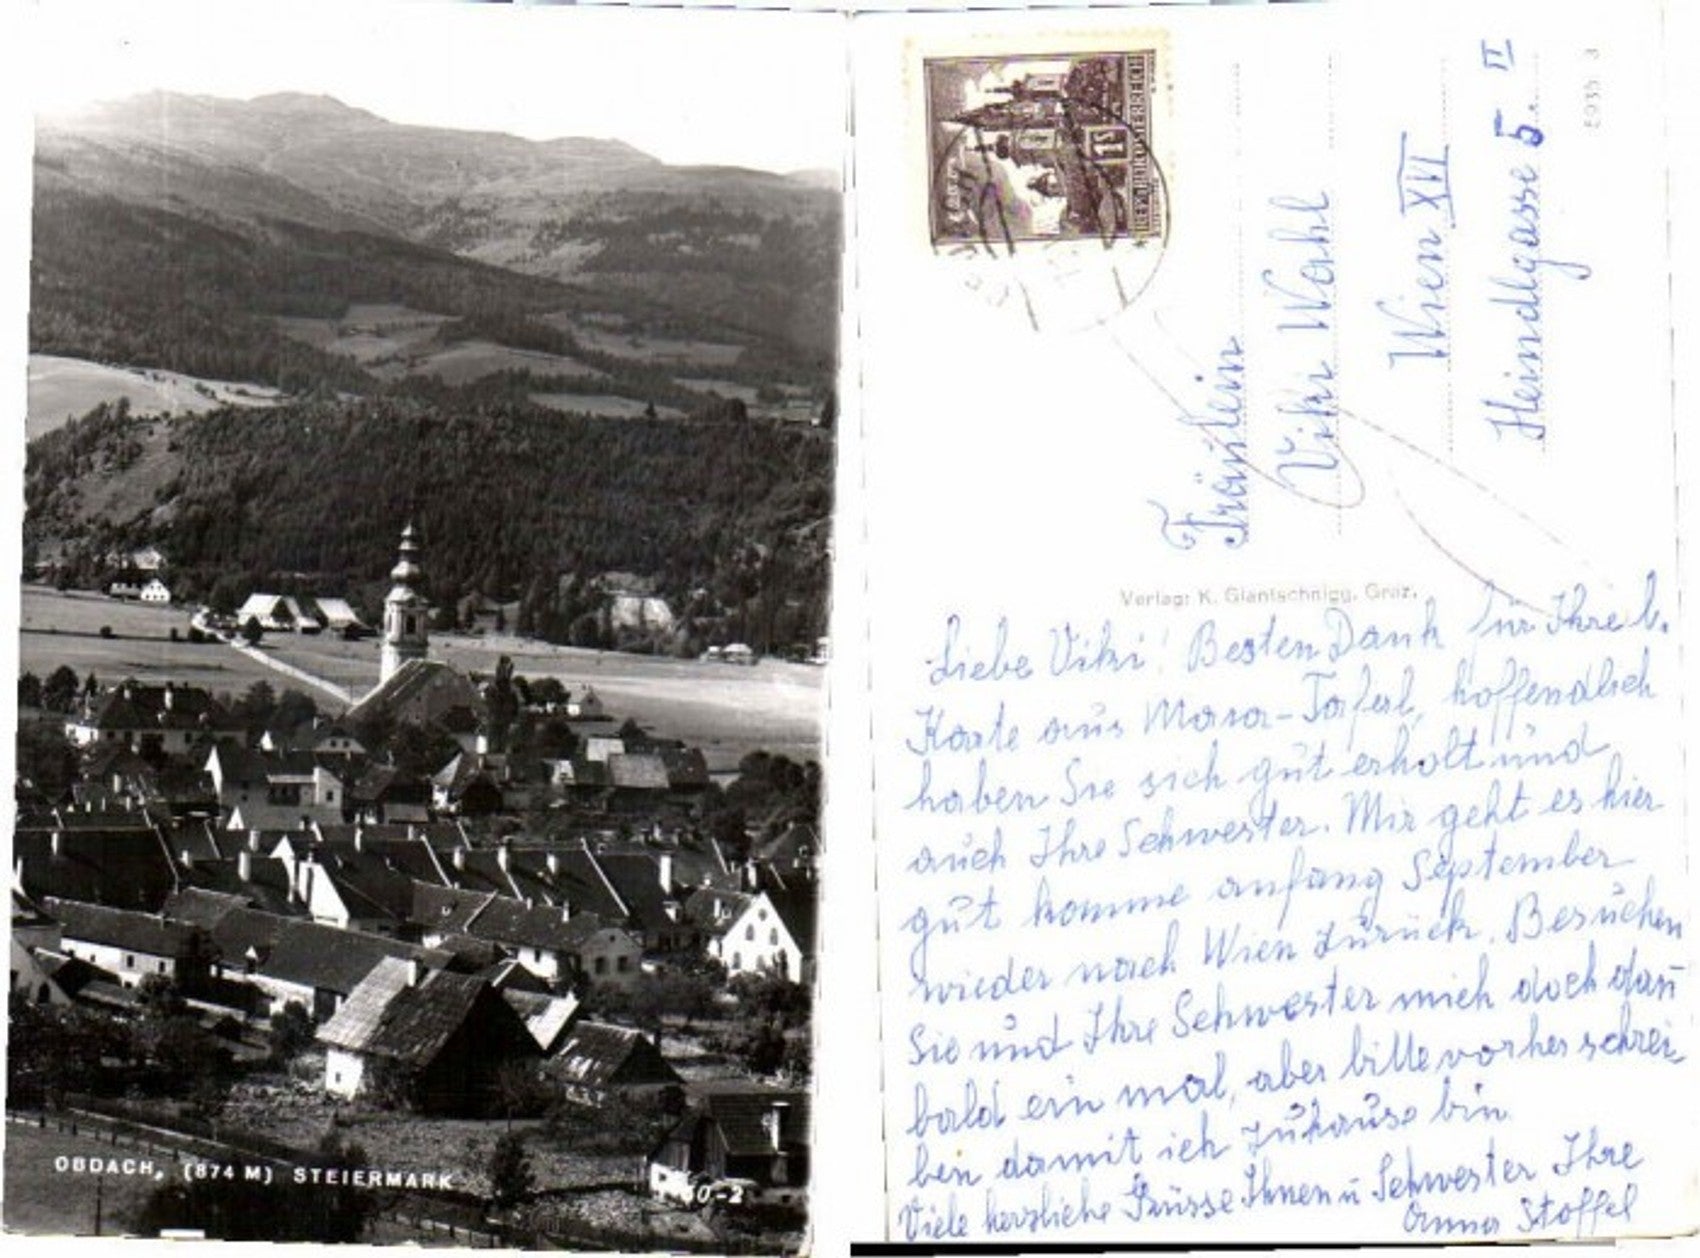 OBDACH, (874 M) STEIERMARK
60-2
REPUBLIK ÖSTERREICH
1S
Fräulein
Viki Wahl
Wien XVI
Heindlgasse 5. II
Verlag: K. Glantschnigg, Graz.
Liebe Viki! Besten Dank für Ihre l.
Karte aus Maria-Taferl, hoffendlich
haben Sie sich gut erholt und
auch Ihre Schwester. Mir geht es hier
gut komme anfang September
wieder nach Wien zurück. Besuchen
Sie und Ihre Schwester mich doch dan̄
bald ein mal, aber bitte vorher schrei-
ben damit ich zuhause bin
Viele herzliche Grüsse Ihnen u Schwester Ihre
Anna Stoffel